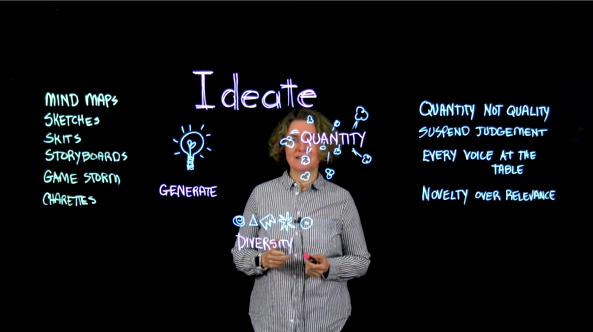 Ideate
MIND MAPS
SKETCHES
SKITS
STORYBOARDS
GAME STORM
CHARETTES
GENERATE
QUANTITY
DIVERSITY
QUANTITY NOT QUALITY
SUSPEND JUDGEMENT
EVERY VOICE AT THE
TABLE
NOVELTY OVER RELEVANCE